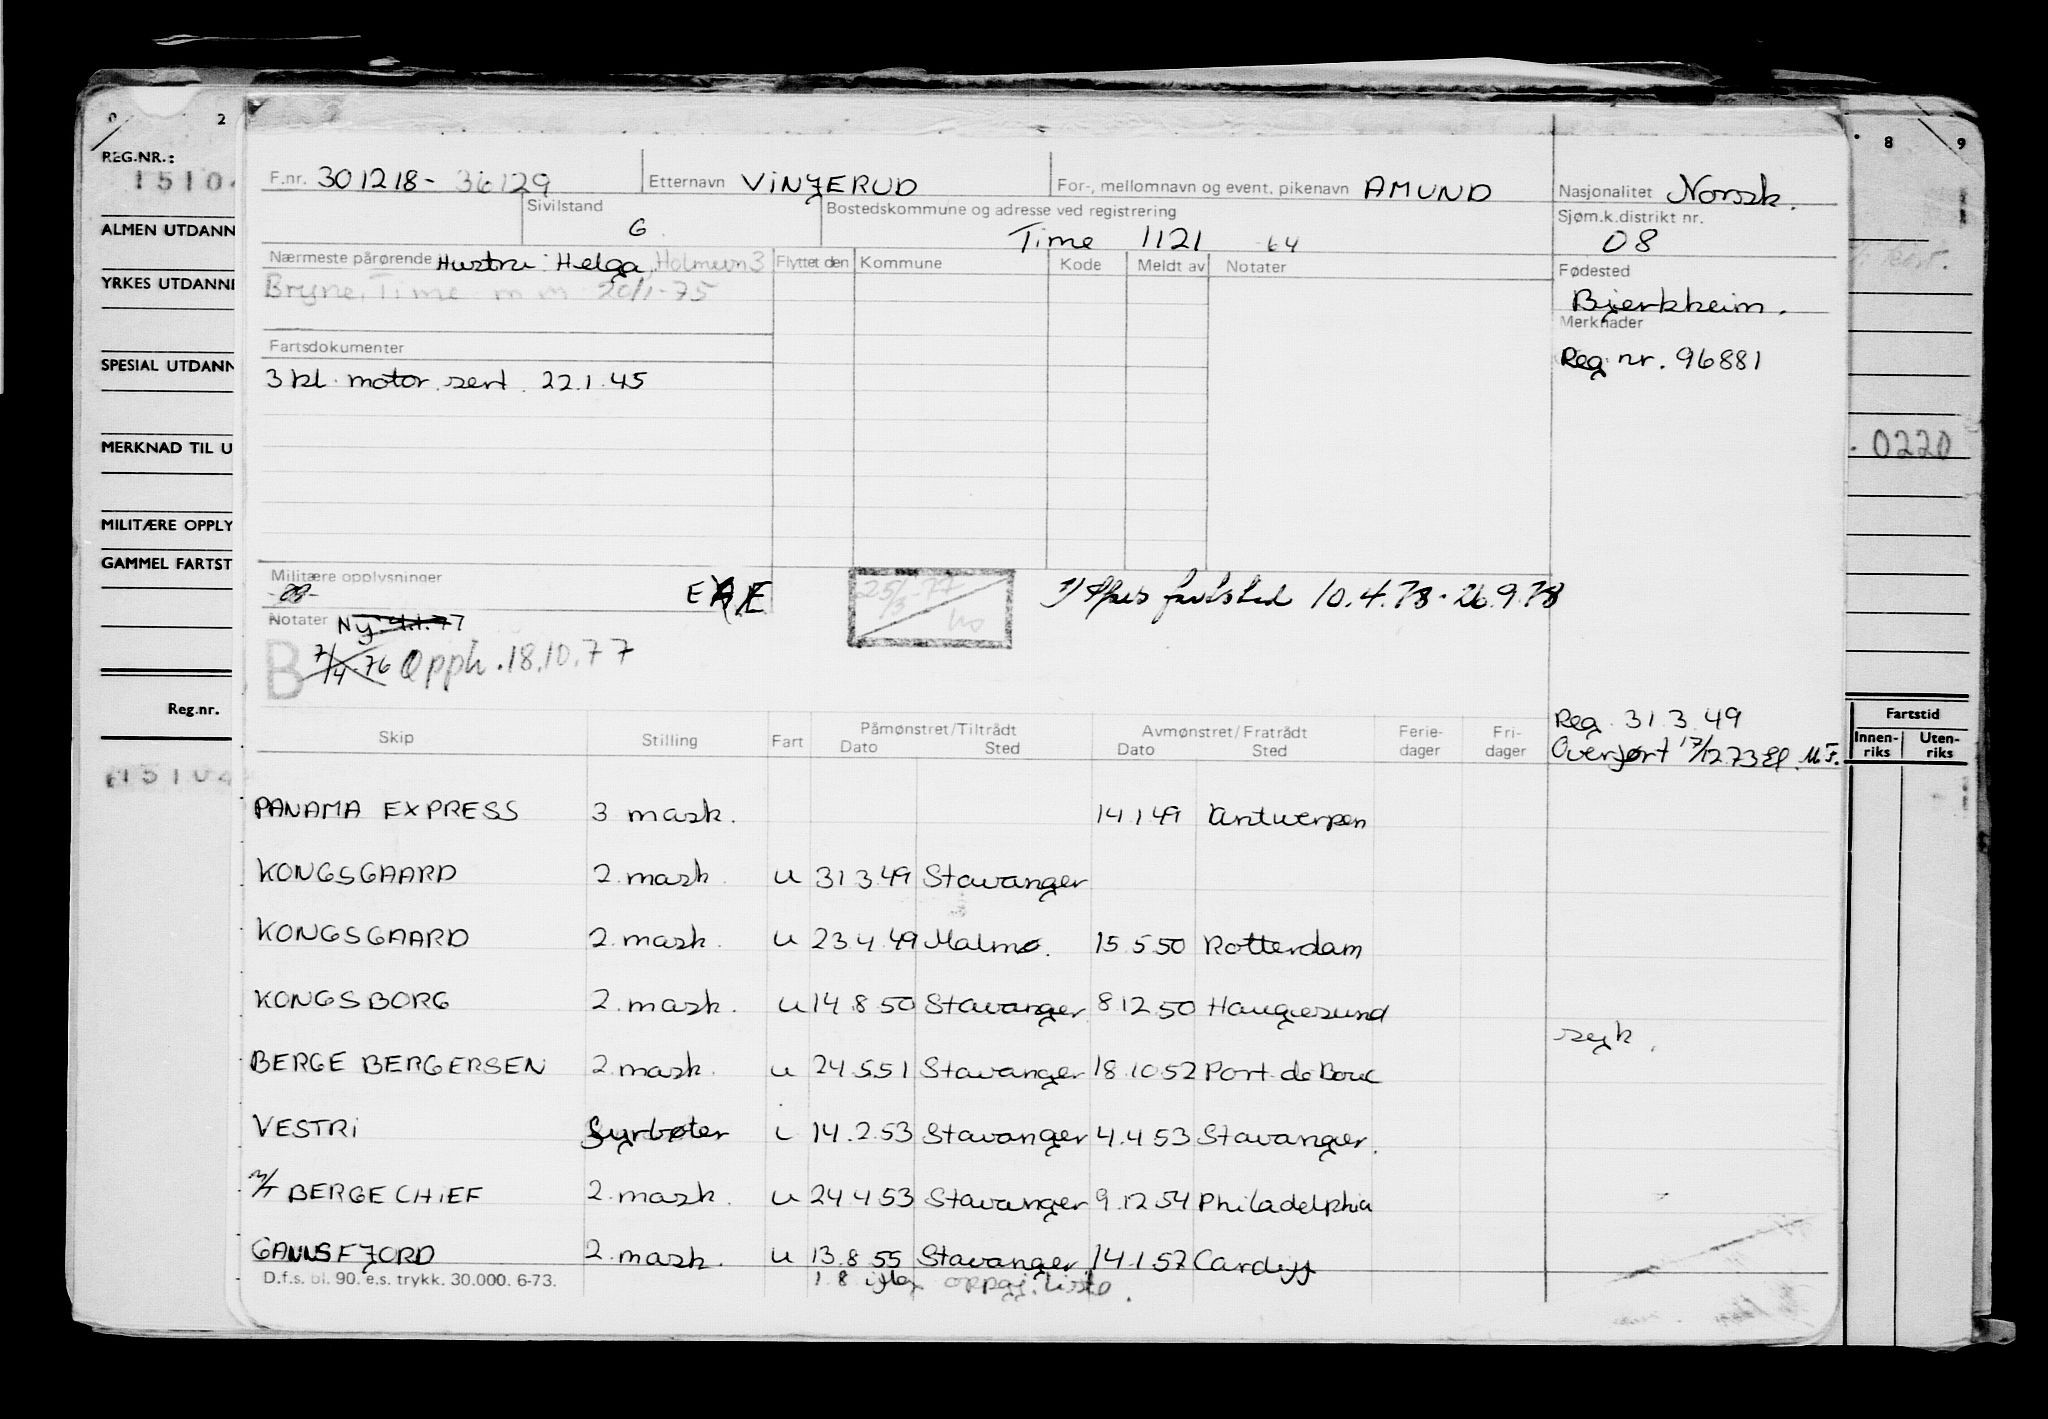 0 2 8 9
REG.NR.:
1510
ALMEN UTDANN
YRKES UTDANNE
SPESIAL UTDANN
MERKNAD TIL U
0220
MILITÆRE OPPLY
GAMMEL FARTST
Reg.nr.
Fartstid
Innen-riks Uten-riks
F.nr. 301218- 36129 Etternavn VINJERUD For-, mellomnavn og event. pikenavn AMUND Nasjonalitet Norsk.
Sivilstand G. Bostedskommune og adresse ved registrering Time 1121 Sjøm.k.distrikt nr. 08
Nærmeste pårørende Hustru: Helga, Holmevn 3 Flyttet den Kommune Kode Meldt av Notater Fødested
Bryne, Time m m 20/1-75 Bjerkheim.
Merknader
Fartsdokumenter Reg nr. 96881
3 kl. motor. sert. 22.1.45
Militære opplysninger
25/3-77
fartsted 10.4.78-26.9.78
Notater Ny 4.1.77
B 7/4.76 Opph. 18.10.77
Reg. 31.3.49
Overført 17/12.73
Skip Stilling Fart Påmønstret/Tiltrådt Dato Sted Avmønstret/Fratrådt Dato Sted Ferie-dager Fri-dager
PANAMA EXPRESS 3 mask. 14.1.49 Antwerpen
KONGSGAARD 2. mask. u 31.3.49 Stavanger
KONGSGAARD 2. mask. u 23.4.49 Malmø. 15.5.50 Rotterdam
KONGSBORG 2. mask. u 14.8.50 Stavanger 8.12.50 Haugesund
syk.
BERGE BERGERSEN 2. mask. u 24.5.51 Stavanger 18.10.52 Port de Bouc
VESTRI Fyrbøter i 14.2.53 Stavanger 4.4.53 Stavanger.
M/T BERGECHIEF 2. mask. u 24.4.53 Stavanger 9.12.54 Philadelphia
GANNSFJORD 2. mask. u 13.8.55 Stavanger 14.1.57 Cardiff
D.f.s. bl. 90. e.s. trykk. 30.000. 6-73. 1.8 iflg oppgj. liste.